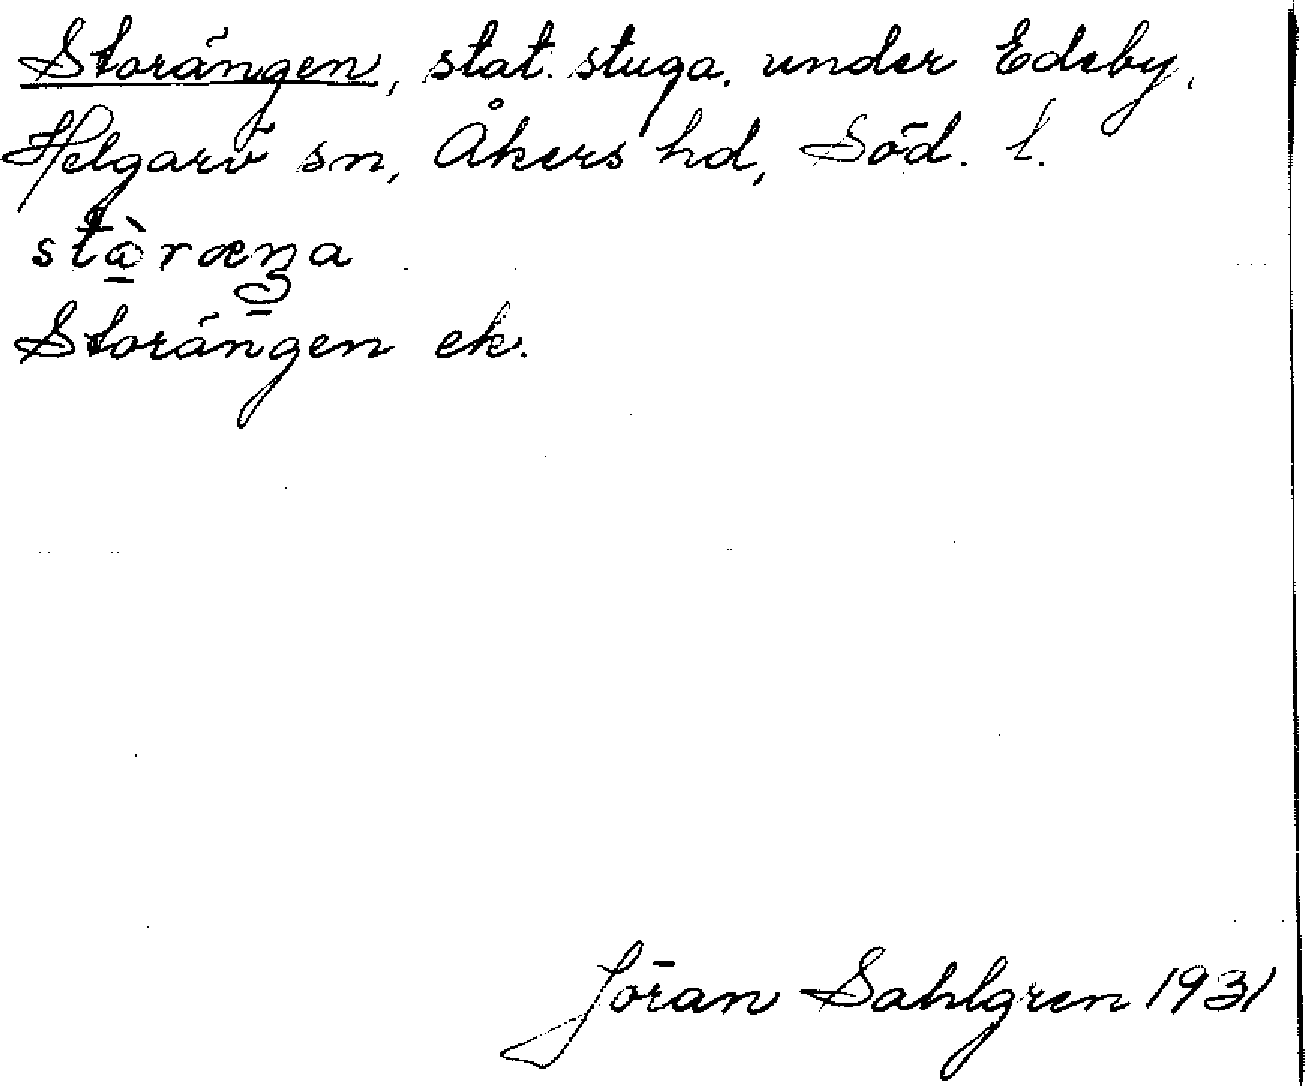 Storängen, stat. stuga. under Edeby,
Helgarö sn, Åkers hd, Söd. l.
stɑ̀ræŋa
Storängen ek.
Jöran Sahlgren 1931